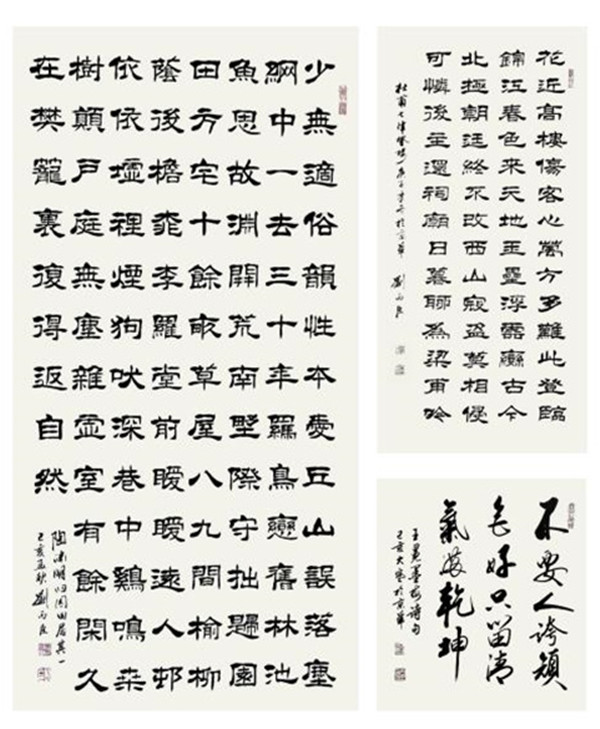 少無適俗韻性本愛丘山誤落塵
網中一去三十年羈鳥戀舊林池
魚思故淵開荒南野際守拙歸園
田方宅十餘畝草屋八九間榆柳
蔭後檐桃李羅堂前曖曖遠人邨
依依墟裡煙狗吠深巷中鷄鳴桑
樹顛戶庭無塵雜虛室有餘閑久
在樊籠裏復得返自然
陶淵明归园田居其一
己亥孟秋劉丙良
花近高樓傷客心萬方多難此登臨
錦江春色來天地玉壘浮雲變古今
北極朝廷終不改西山寇盜莫相侵
可憐後主還祠廟日暮聊為梁甫吟
杜甫七律登樓一首於京華 劉丙良
不要人誇顏
色好只留清
氣滿乾坤
王冕墨梅詩句
己亥大寒於京華